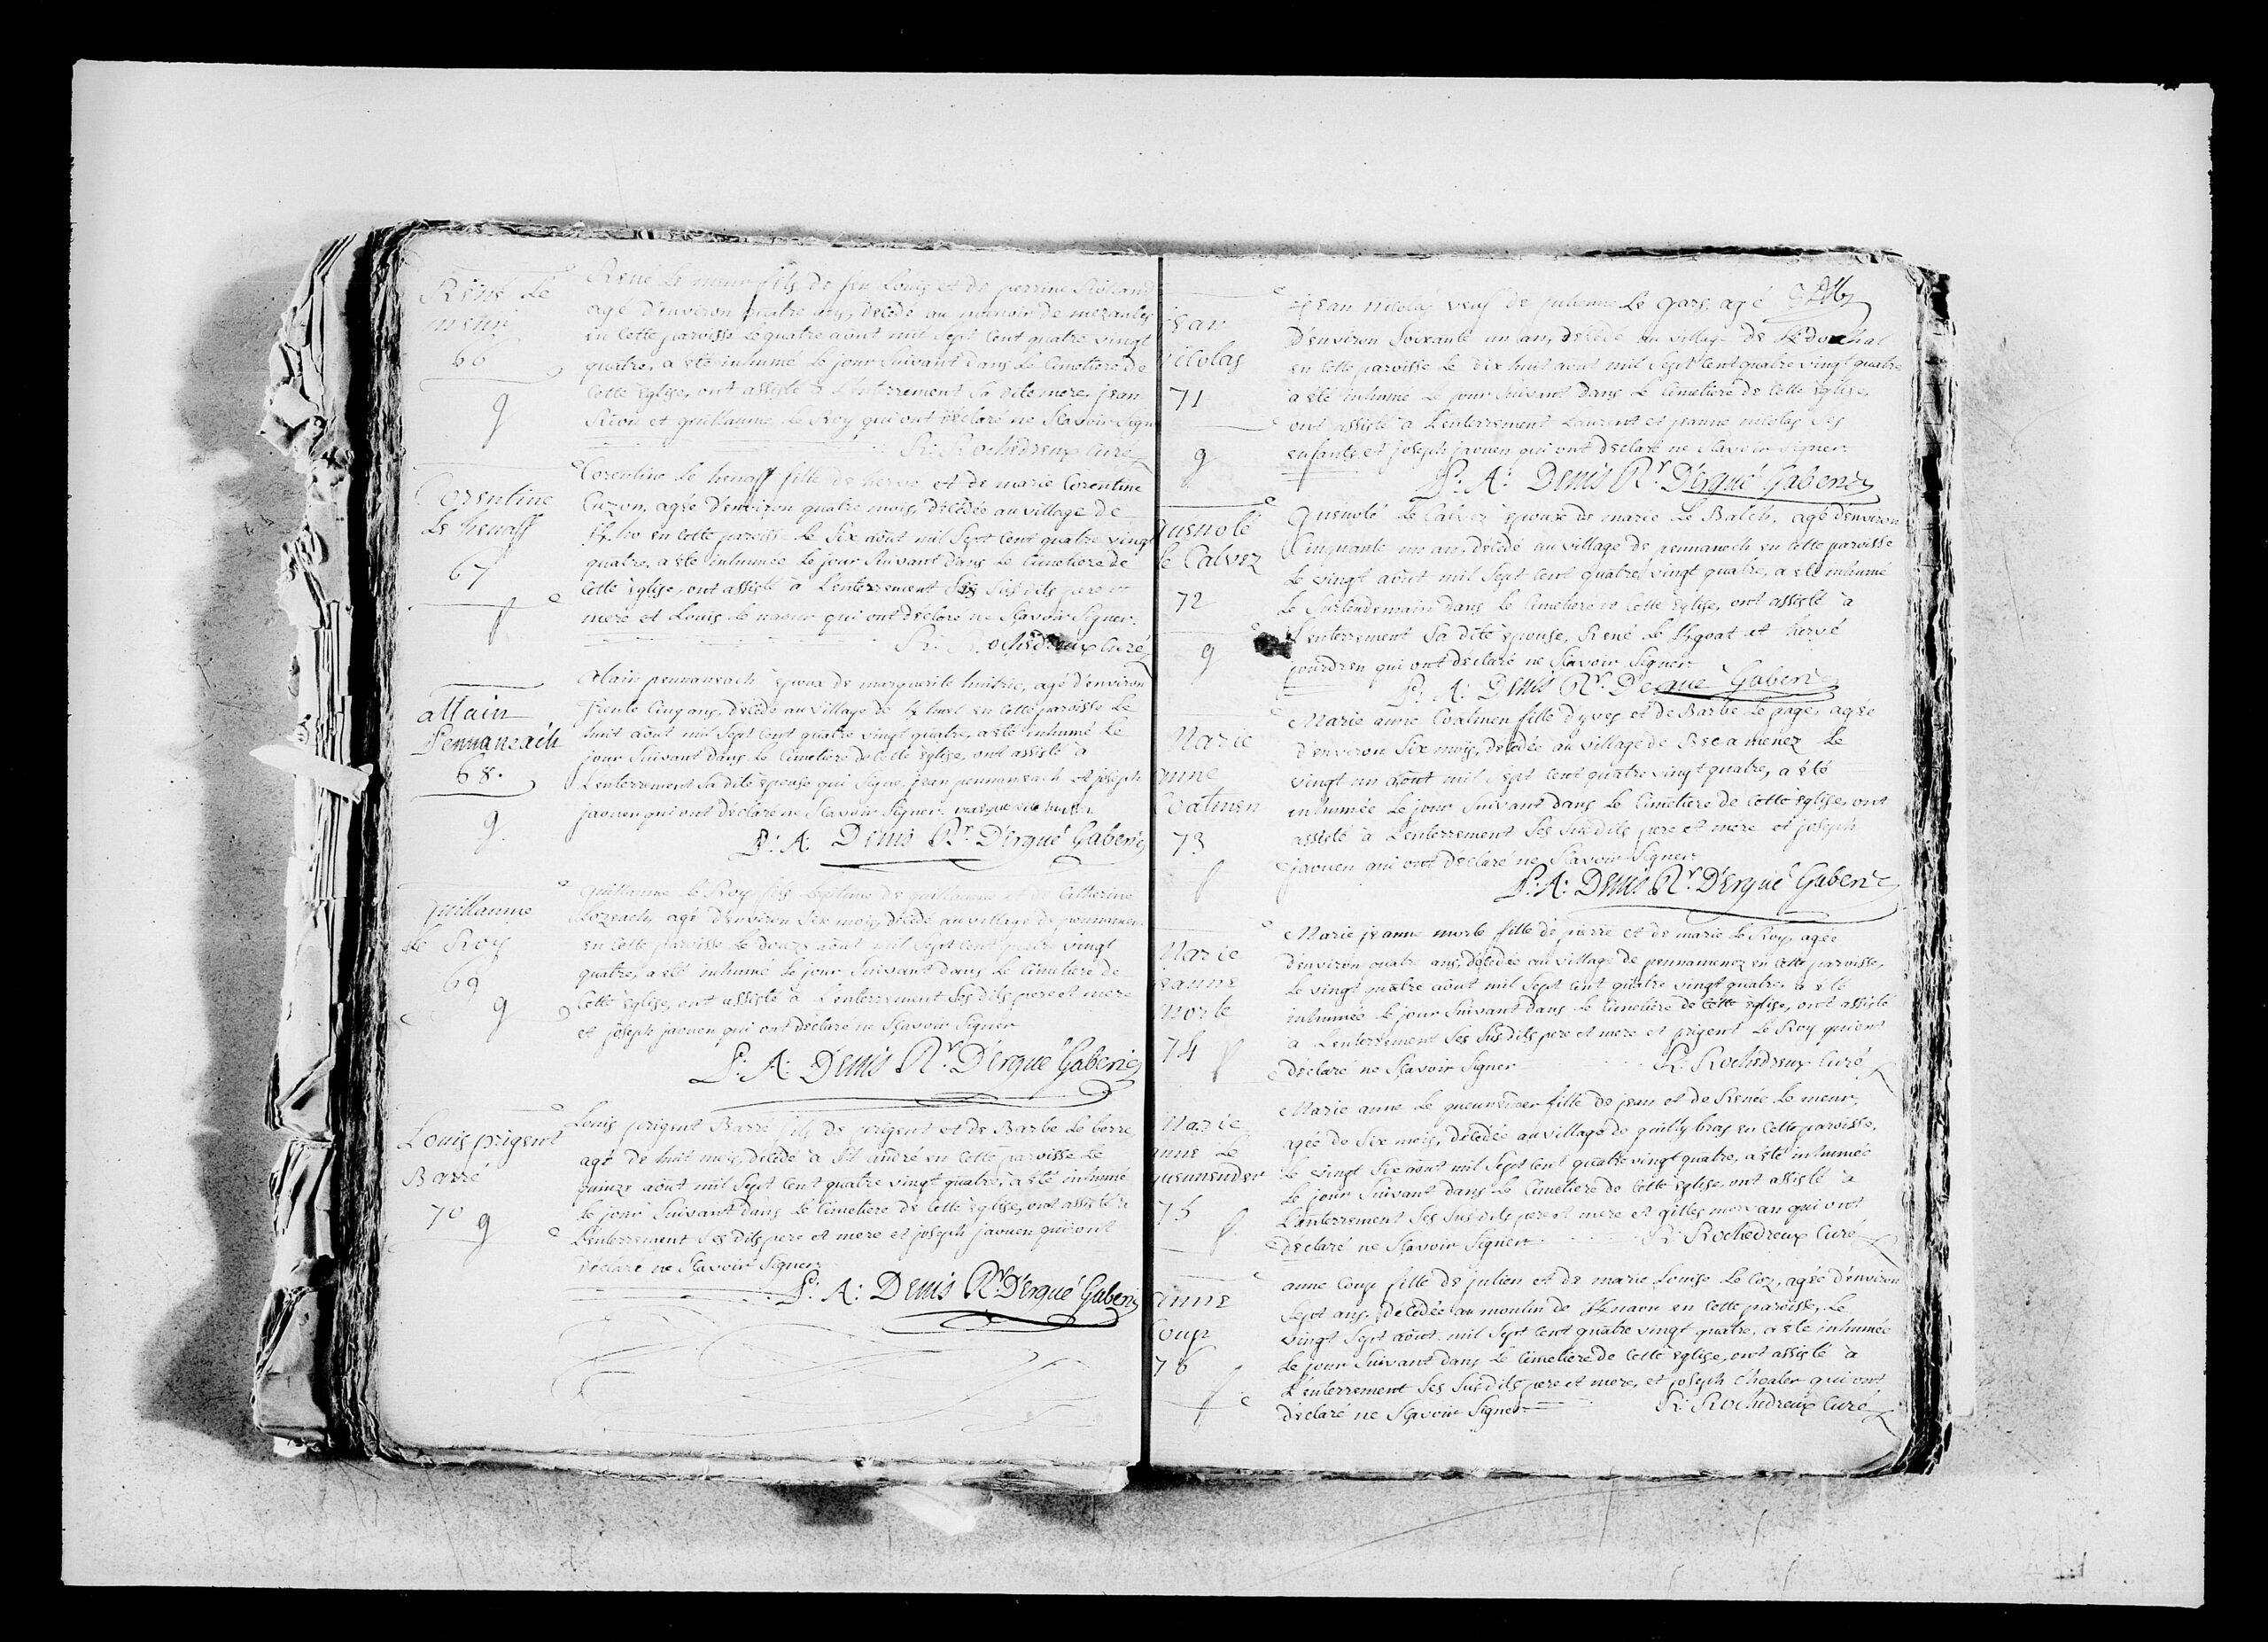 René Le
meur
66
g
René Le meur fils de feu Louis et de perrine Rolland
agé d'environ quatre ans, decedé au manoir de mezanles
en cette paroisse le quatre août mil Sept Cent quatre vingt
quatre, a été inhumé le jour Suivant dans Le Cimetiere de
Cette Eglise, ont assisté à L'enterrement Sa dite mere, jean
Riou et guillaume Le Roy qui ont déclaré ne Sçavoir Signer
R: Rochedreux Curé
Corentine
Le henaff
67
f
Corentine Le henaff fille de hervé et de marie Corentine
Cuzon, agée d'environ quatre mois, decedée au village de
en cette paroisse le Six août mil Sept Cent quatre vingt
quatre, a été inhumée le jour Suivant dans Le Cimetiere de
Cette Eglise, ont assisté à L'enterrement Ses Susdits pere et
mere et Louis Le naour qui ont déclaré ne Sçavoir Signer.
R: Rochedreux Curé
allain
Pennaneach
68.
g.
Alain pennaneach époux de marguerite huitric, agé d'environ
trente Cinq ans, decedé au village de en Cette paroisse Le
huit août mil Sept Cent quatre vingt quatre, a été inhumé Le
jour Suivant dans Le Cimetiere de Cette Eglise, ont assisté à
L'enterrement Sa dite épouse qui Signe, jean pennaneach et joseph
jaouen qui ont déclaré ne Sçavoir Signer. marguerite huitric
P: A: Denis Rr. D'Ergué Gaberic
guillaume
Le Roy
69
g
guillaume Le Roy fils légitime de guillaume et de Catherine
Rozeach, agé d'environ Six mois, decedé au village de pennamenez
en Cette paroisse le douze août mil Sept Cent quatre vingt
quatre, a été inhumé le jour Suivant dans Le Cimetiere de
Cette Eglise, ont assisté à L'enterrement Ses dits pere et mere
et joseph jaouen qui ont déclaré ne Sçavoir Signer
P: A: Denis Rr. D'Ergué Gaberic
Louis prigent
Barré
70 g
Louis prigent Barré fils de prigent et de Barbe Le berre,
agé de huit mois, decedé à St. andré en Cette paroisse Le
quinze août mil Sept Cent quatre vingt quatre, a été inhumé
le jour Suivant dans Le Cimetiere de Cette Eglise, ont assisté à
L'enterrement Ses dits pere et mere et joseph jaouen qui ont
déclaré ne Sçavoir Signer
P: A: Denis Rr. D'Ergué Gaberic
jean
nicolas
71
g
jean nicolas veuf de julienne Le gars, agé
d'environ Soixante un an, decedé au village de
en Cette paroisse Le dix huit août mil Sept Cent quatre vingt quatre
a été inhumé Le jour Suivant dans Le Cimetiere de Cette Eglise,
ont assisté à L'enterrement Laurent et jeanne nicolas Ses
enfants et joseph jaouen qui ont déclaré ne Sçavoir Signer.
P: A: Denis Rr. D'Ergué Gaberic
guenolé
Le Calvez
72
g
guenolé Le Calvez epoux de marie Le Balch, agé d'environ
Cinquante un an, decedé au village de pennanech en Cette paroisse
Le vingt août mil Sept Cent quatre vingt quatre, a été inhumé
Le Surlendemain dans Le Cimetiere de Cette Eglise, ont assisté à
L'enterrement Sa dite épouse, René Le et hervé
jourdren qui ont déclaré ne Sçavoir Signer
P: A: Denis Rr. D'Ergué Gaberic
Marie
anne
Coatmen
73
f
Marie anne Coatmen fille d'yves et de Barbe Le page, agée
d'environ Six mois, decedée au village de Bec a menez Le
vingt un août mil Sept Cent quatre vingt quatre, a été
inhumée Le jour Suivant dans Le Cimetiere de Cette Eglise, ont
assisté à L'enterrement Ses Susdits pere et mere et joseph
jaouen qui ont déclaré ne Sçavoir Signer
P: A: Denis Rr. D'Ergué Gaberic
Marie
jeanne
morte
74 f
Marie jeanne morte fille de pierre et de marie Le Roy, agée
d'environ quatre ans, decedée au village de pennamenez en Cette paroisse,
Le vingt quatre août mil Sept Cent quatre vingt quatre, a été
inhumée Le jour Suivant dans Le Cimetiere de Cette Eglise, ont assisté
à L'enterrement Ses Susdits pere et mere et prigent Le Roy qui ont
déclaré ne Sçavoir Signer R: Rochedreux Curé
Marie
anne Le
gueneuder
75
f
Marie anne Le fille de jean et de Renée Le meur,
agée de Six mois, decedée au village de quilly bras en Cette paroisse,
Le vingt Six août mil Sept Cent quatre vingt quatre, a été inhumée
Le jour Suivant dans Le Cimetiere de Cette Eglise, ont assisté à
L'enterrement Ses Susdits pere et mere et gilles morvan qui ont
déclaré ne Sçavoir Signer R: Rochedreux Curé
anne
Coup
76
f
anne Coup fille de julien et de marie Louise Le Coz, agée d'environ
Sept ans, decedée au moulin de en Cette paroisse, Le
vingt Sept août mil Sept Cent quatre vingt quatre, a été inhumée
Le jour Suivant dans Le Cimetiere de Cette Eglise, ont assisté à
L'enterrement Ses Susdits pere et mere, et joseph qui ont
déclaré ne Sçavoir Signer R: Rochedreux Curé